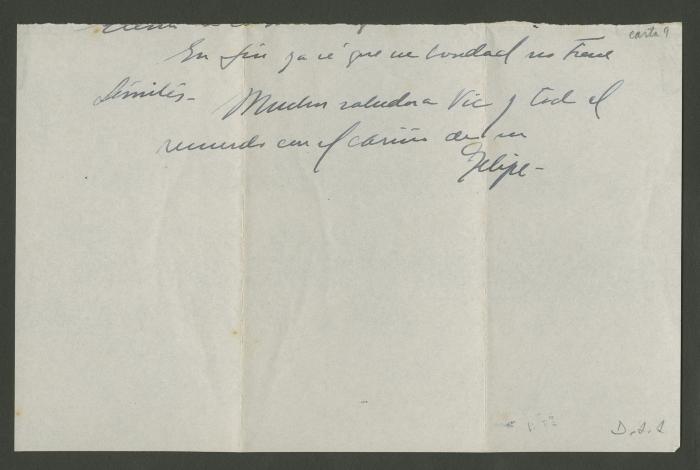 carta 9
En fin ya sé que su bondad no tiene
límites - Muchos saludos a Vic y todo el
recuerdo con el cariño de su
Felipe -
D.s.s